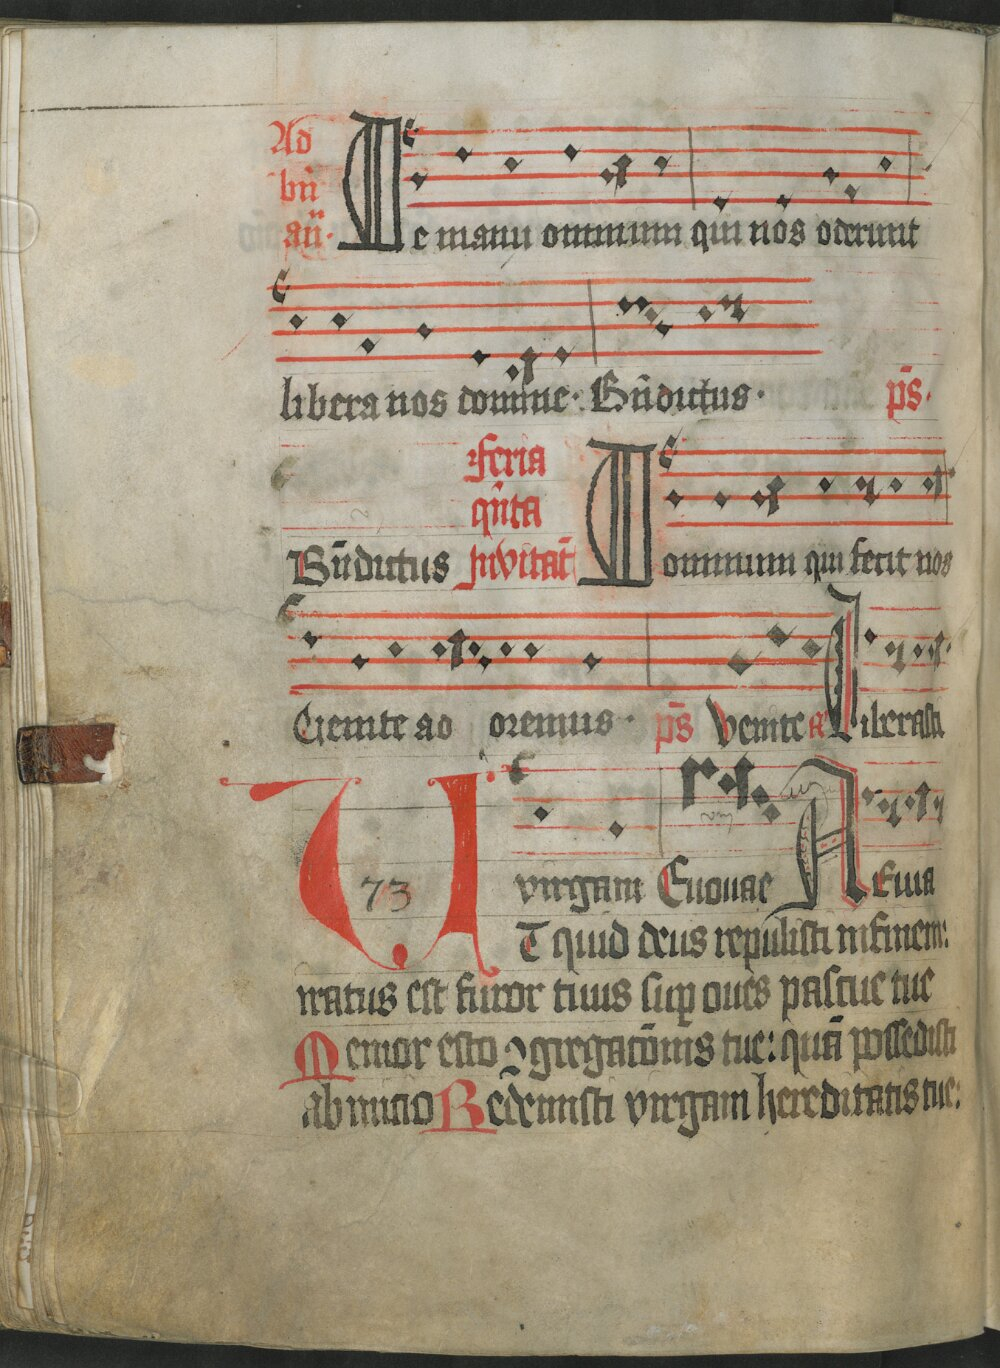 Ad
bn̄
an̄.
De manu omnium qui nos oderunt
libera nos domine· Bn̄dictus· ps̄.
feria
qn̄ta
Bn̄dictus Jnvitat̄ Dominum qui fecit nos
Uenite ad oremus· ps̄ Venite a Liberasti
73
virgam Euouae A Euia
UT quid deus repulisti in finem:
iratus est furor tuus sup oues pascue tue
Memor esto ꝯgregatōnis tue: quā possedisti
ab inicio Redemisti virgam hereditatis tue: